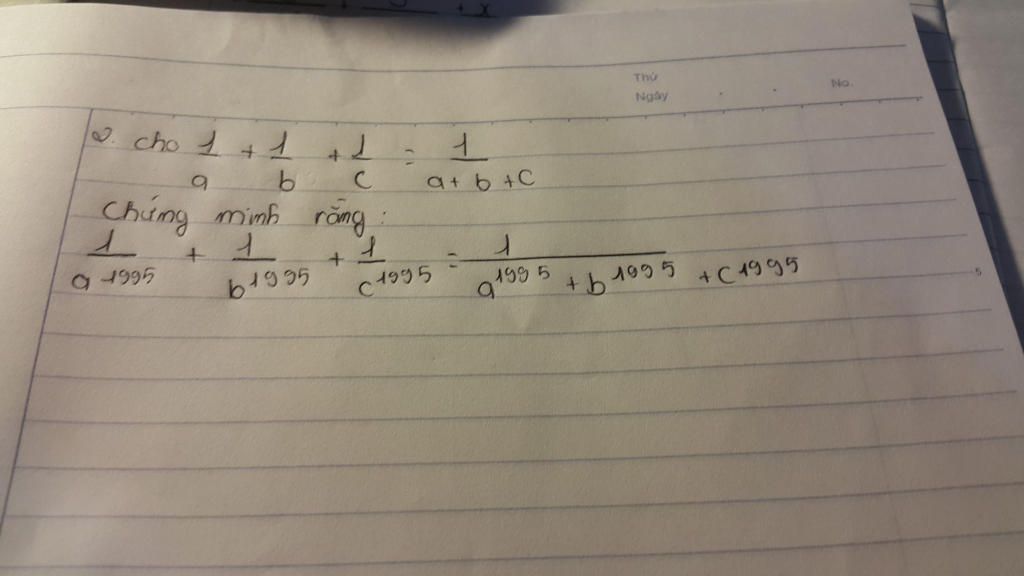 Thứ
Ngày
No.
2. cho 1/a + 1/b + 1/c = 1/(a + b + c)
Chứng minh rằng:
1/a^1995 + 1/b^1995 + 1/c^1995 = 1/(a^1995 + b^1995 + c^1995)